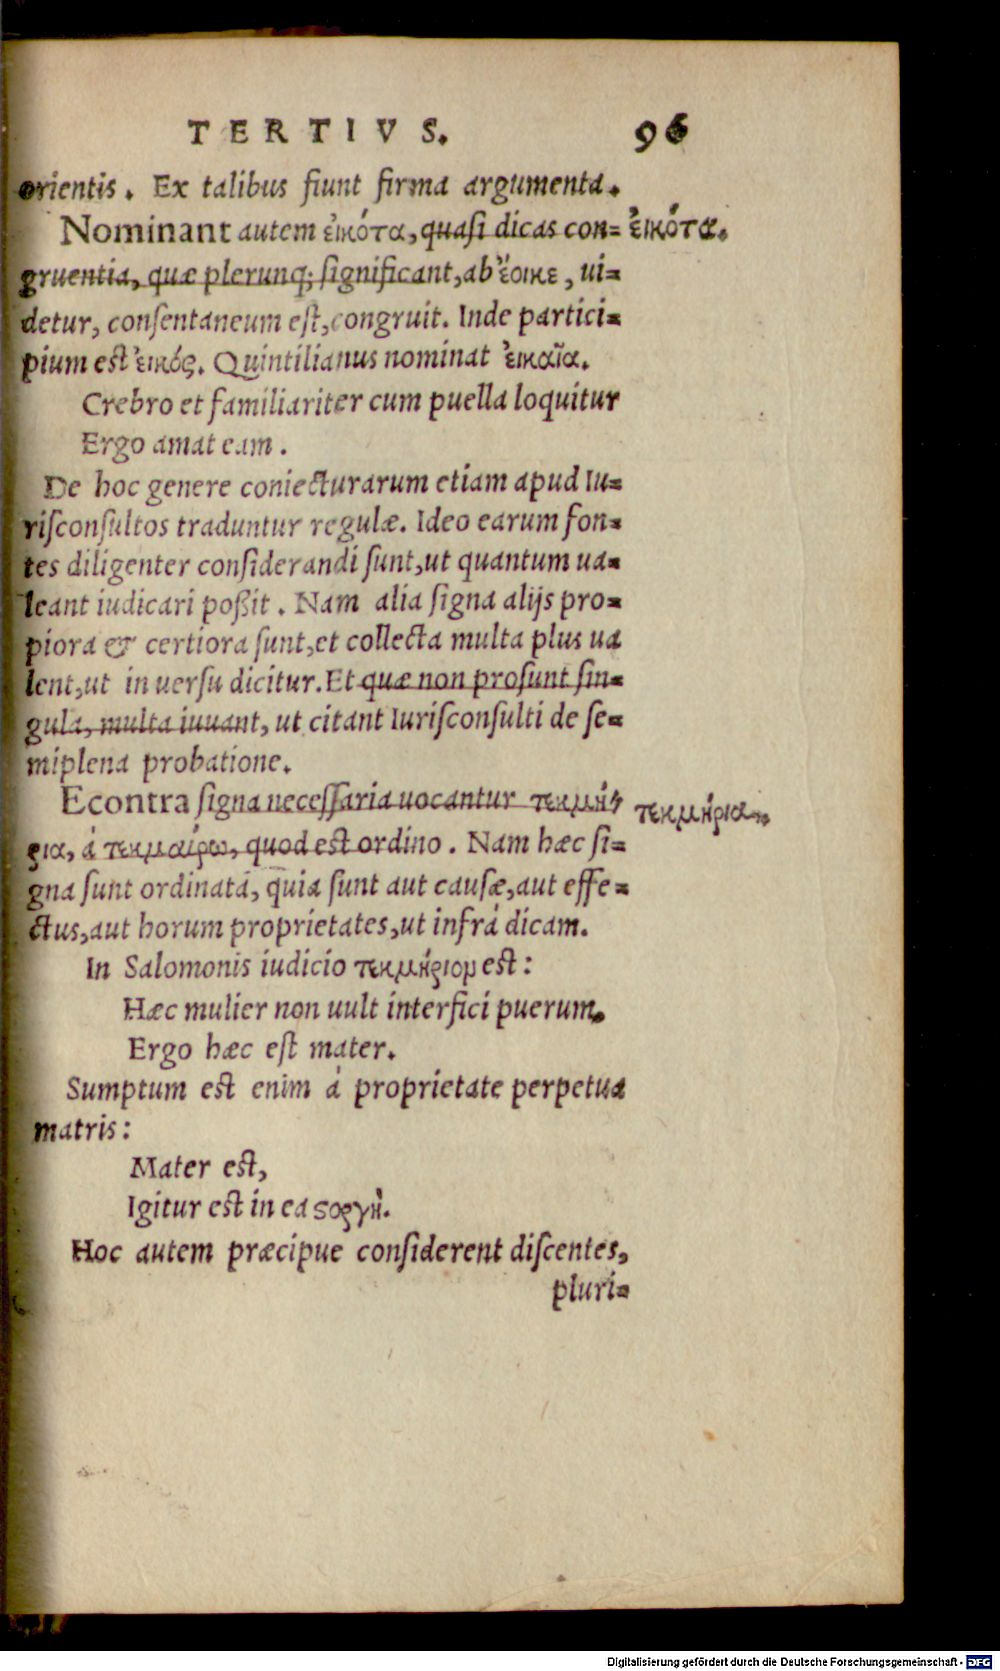 TERTIVS. 96
orientis. Ex talibus fiunt firma argumenta.
Nominant autem ἐικότα, quasi dicas con= ἐικότα.
gruentia, quæ plerunq; significant, ab ἔοικε, ui=
detur, consentaneum est, congruit. Inde partici=
pium est ἐικός. Quintilianus nominat ἐικαῖα.
Crebro et familiariter cum puella loquitur
Ergo amat eam.
De hoc genere coniecturarum etiam apud Iu=
risconsultos traduntur regulæ. Ideo earum fon=
tes diligenter considerandi sunt, ut quantum ua=
leant iudicari poßit. Nam alia signa alijs pro=
piora & certiora sunt, et collecta multa plus ua
lent, ut in uersu dicitur. Et quæ non prosunt sin=
gula, multa iuuant, ut citant Iurisconsulti de se=
miplena probatione.
Econtra signa necessaria uocantur τεκμή= τεκμήρια.
ρια, à τεκμαίρω, quod est ordino. Nam hæc si=
gna sunt ordinata, quia sunt aut causæ, aut effe=
ctus, aut horum proprietates, ut infrà dicam.
In Salomonis iudicio τεκμήριον est:
Hæc mulier non uult interfici puerum.
Ergo hæc est mater.
Sumptum est enim à proprietate perpetua
matris:
Mater est,
Igitur est in ea ϛοργὴ.
Hoc autem præcipue considerent discentes,
pluri=
Digitalisierung gefördert durch die Deutsche Forschungsgemeinschaft - DFG